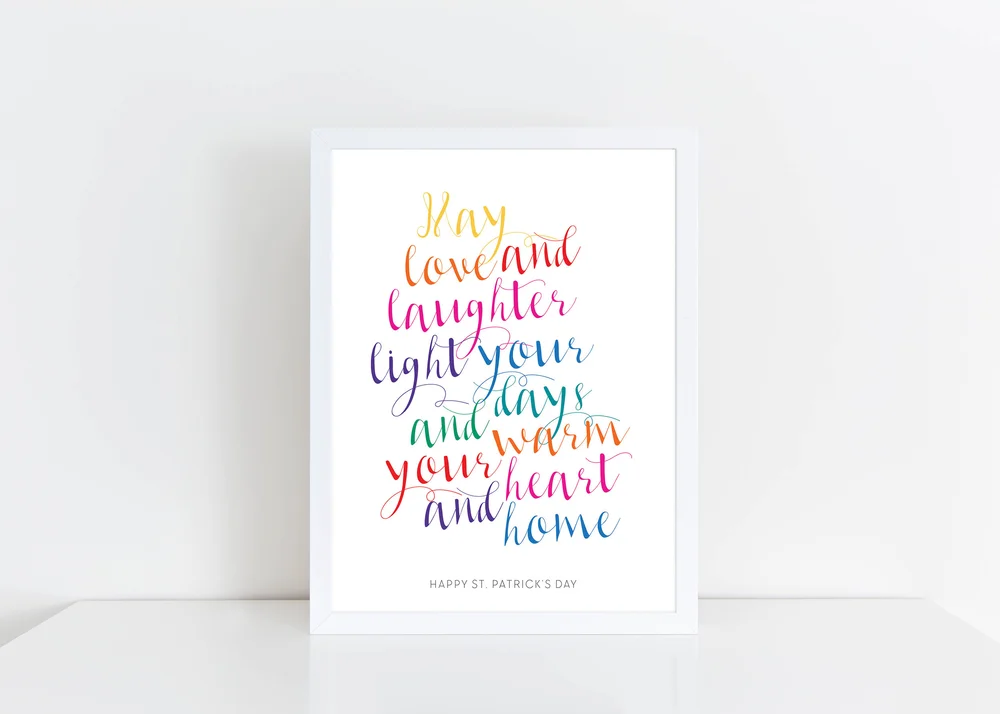 May
love and
laughter
light your
and days
your warm
and heart
home
HAPPY ST. PATRICK'S DAY